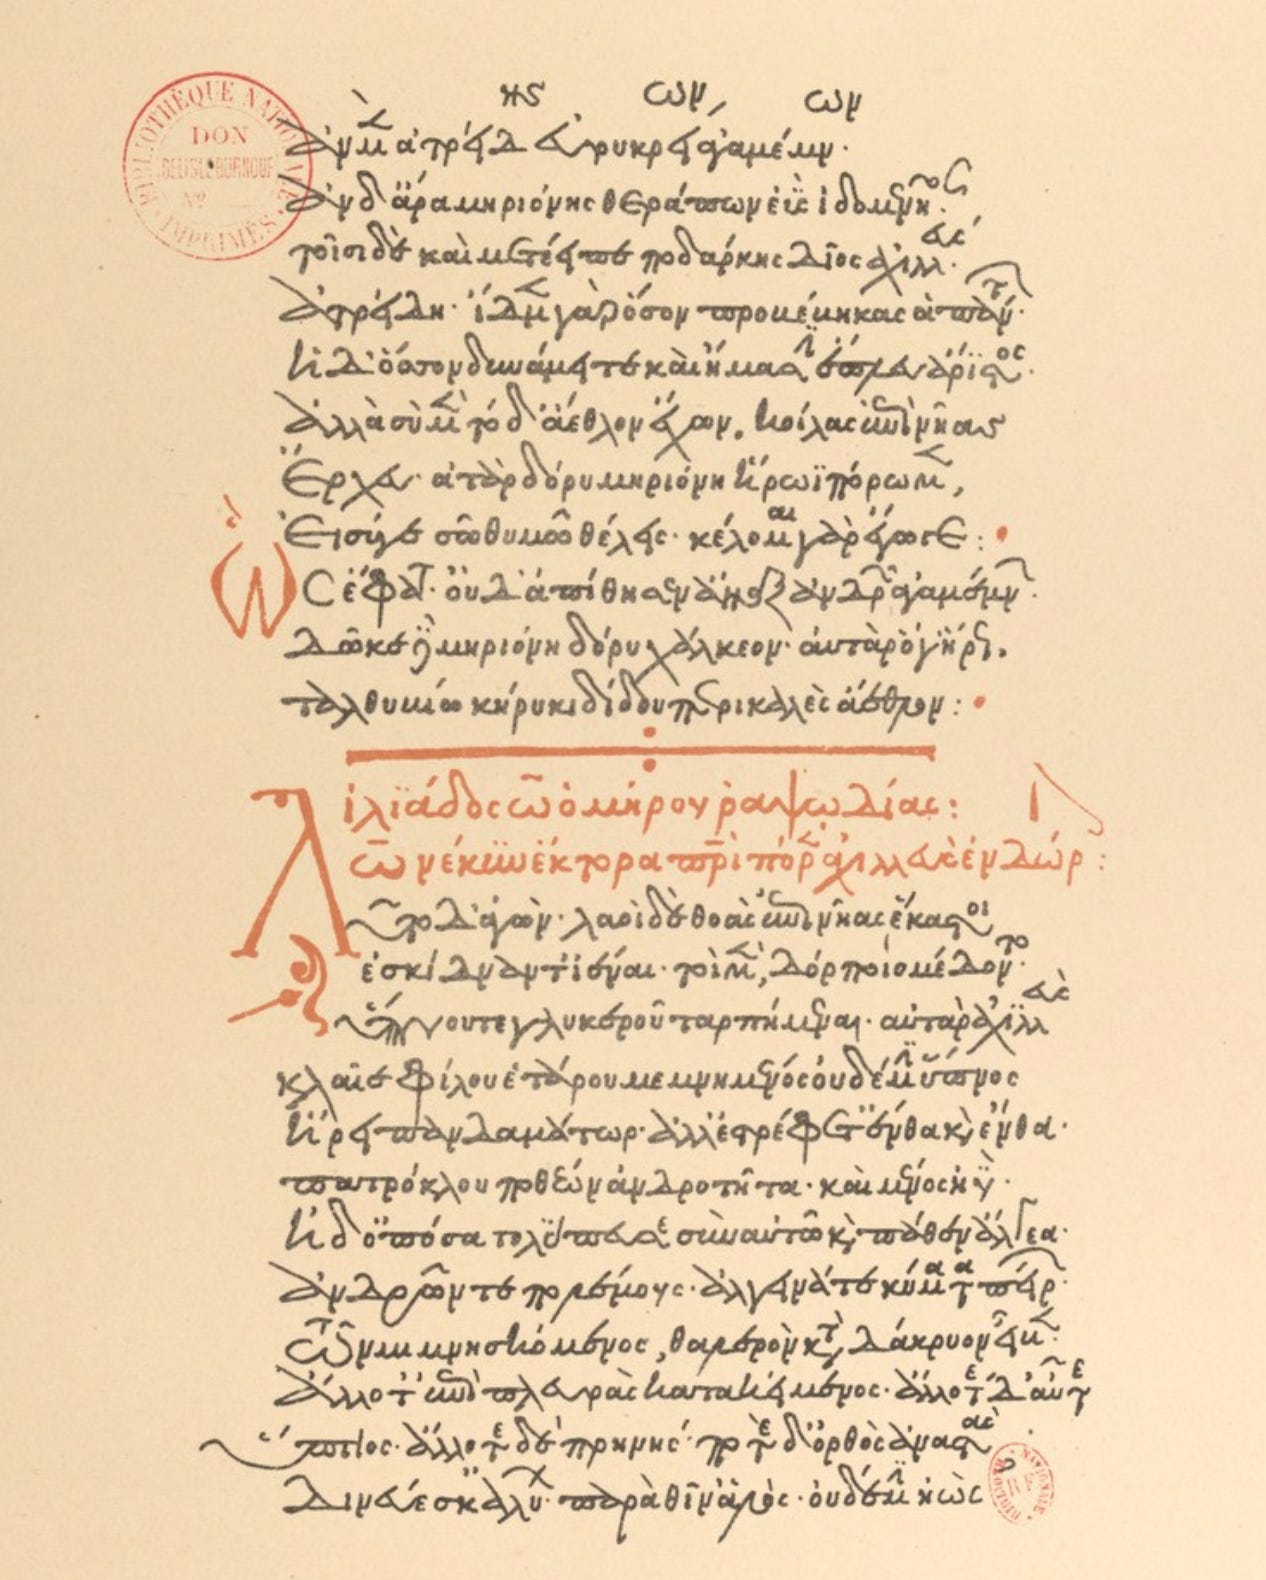 ἂν μὲν ἀτρείδης εὐρυκρείων ἀγαμέμνων·
ἂν δ' ἄρα μηριόνης θεράπων ἐῢς ἰδομενῆος·
τοῖσι δὲ καὶ μετέειπε ποδάρκης δῖος ἀχιλλεύς·
ἀτρείδη· ἴδμεν γὰρ ὅσον προβέβηκας ἁπάντων·
ἠδ' ὅσσον δυνάμει τε καὶ ἥμασιν ἔπλευ ἄριστος·
ἀλλὰ σὺ μὲν τόδ' ἄεθλον ἔχων, κοίλας ἐπὶ νῆας
ἔρχευ· ἀτὰρ δόρυ μηριόνη ἥρωϊ πόρωμεν,
εἰ σύ γε σῶ θυμῶ θέλεις· κέλομαι γὰρ ἔγωγε:
ὣς ἔφατ'· οὐδ' ἀπίθησεν ἄναξ ἀνδρῶν ἀγαμέμνων·
δῶκε δὲ μηριόνη δόρυ χάλκεον· αὐτὰρ ὅγ' ἥρως.
ταλθυβίω κήρυκι δίδου περικαλλὲς ἄεθλον:
ἰλϊάδος ω ὁμήρου ῥαψωδίας:
ω νέκυν ἕκτορα πρὶ πόρ ἀχιλλεὺς ἐν δώρ:
λῦτο δ' ἀγών· λαοὶ δὲ θοὰς ἐπὶ νῆας ἕκαστοι
ἐσκίδναντ' ἰέναι· τοὶ μὲν, δόρποιο μέδοντο·
ὕπνου τε γλυκεροῦ ταρπήμεναι· αὐτὰρ ἀχιλλεὺς
κλαῖε φίλου ἑτάρου μεμνημένος οὐδέ μιν ὕπνος
ἥρει πανδαμάτωρ· ἀλλ' ἐστρέφετ' ἔνθα καὶ ἔνθα·
πατρόκλου ποθέων ἀνδροτῆτα· καὶ μένος ἠΰ·
ἠδ' ὁπόσα τολύπευσε σὺν αὐτῶ καὶ πάθεν ἄλγεα·
ἀνδρῶν τε πτολέμους· ἀλγεινά τε κύματα πείρων·
τῶν μιμνησκόμενος, θαλερὸν κατὰ, δάκρυον εἶβεν·
ἄλλοτ' ἐπὶ πλευρὰς κατακείμενος· ἄλλοτε δ' αὖτε
ὕπτιος· ἄλλοτε δὲ πρηνής· τοτὲ δ' ὀρθὸς ἀναστὰς
δινεύεσκ' ἀλύων· παρὰ θῖν' ἁλὸς· οὐδέ μιν ἠὼς
BIBLIOTHÈQUE NATIONALE
DON
DELISLE BURNOUF
Nº
IMPRIMÉS